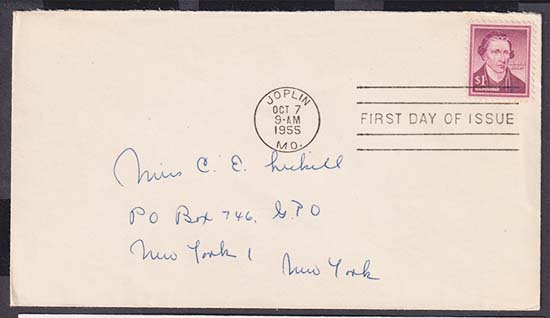 $1
JOPLIN
OCT 7
9-AM
1955
MO.
FIRST DAY OF ISSUE
Miss C. E.
PO Box 746, G.P.O
New York 1
New York